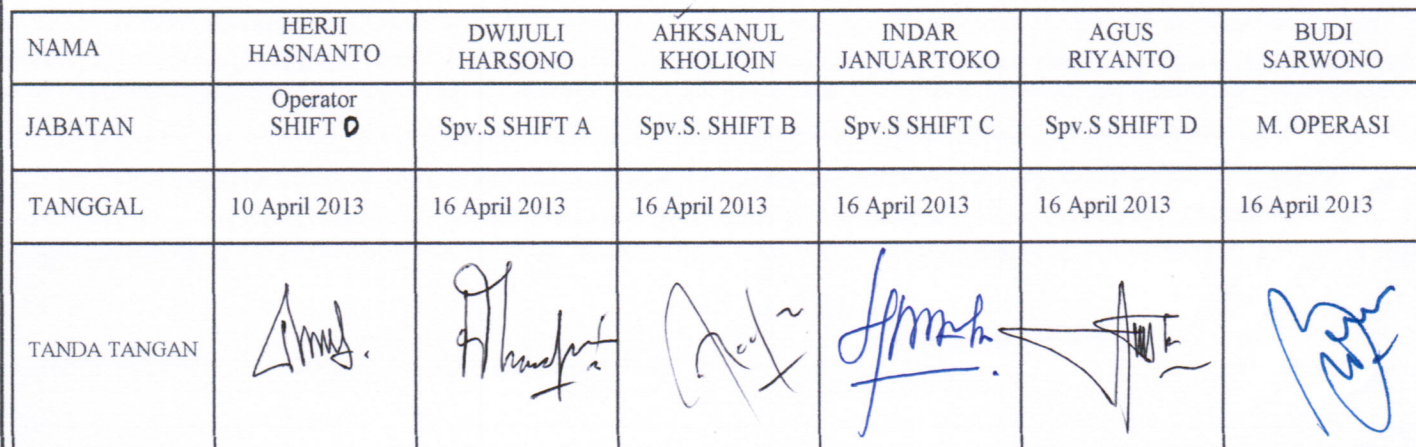 NAMA
HERJI
HASNANTO
DWIJULI
HARSONO
AHKSANUL
KHOLIQIN
INDAR
JANUARTOKO
AGUS
RIYANTO
BUDI
SARWONO
JABATAN
Operator
SHIFT D
Spv.S SHIFT A
Spv.S. SHIFT B
Spv.S SHIFT C
Spv.S SHIFT D
M. OPERASI
TANGGAL
10 April 2013
16 April 2013
16 April 2013
16 April 2013
16 April 2013
16 April 2013
TANDA TANGAN